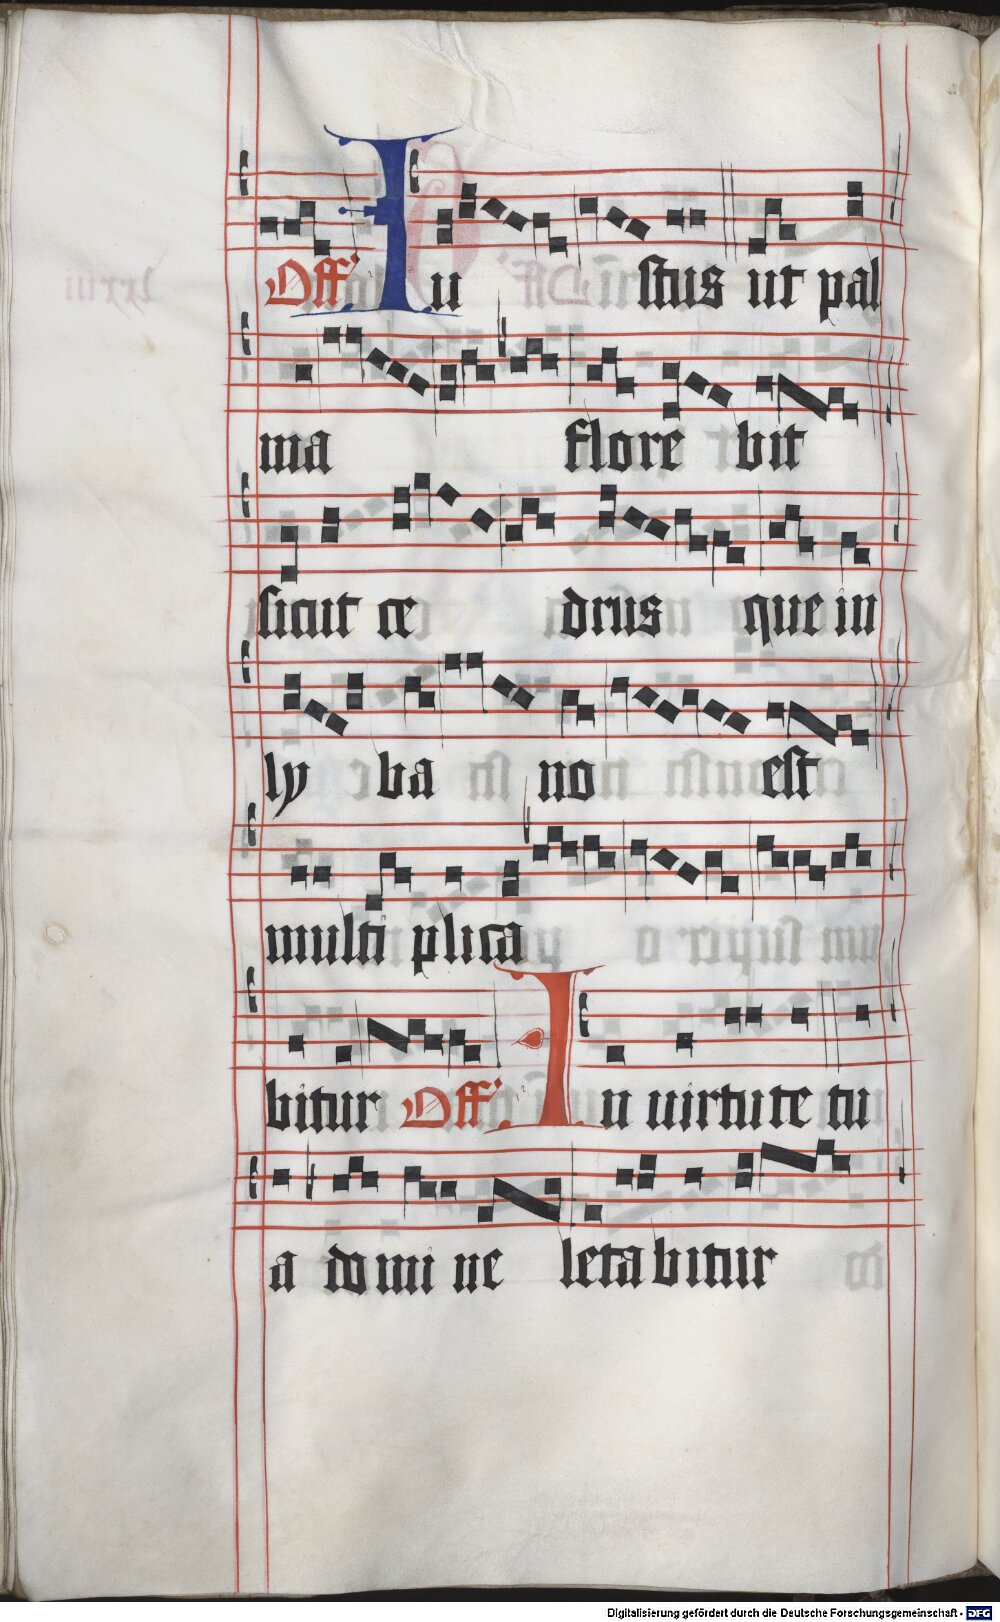 Off Iu stus ut pal
ma flore bit
sicut ce drus que in
ly ba no est
multi plica
bitur Off In uirtute tu
a domi ne letabitur
Digitalisierung gefördert durch die Deutsche Forschungsgemeinschaft - DFG